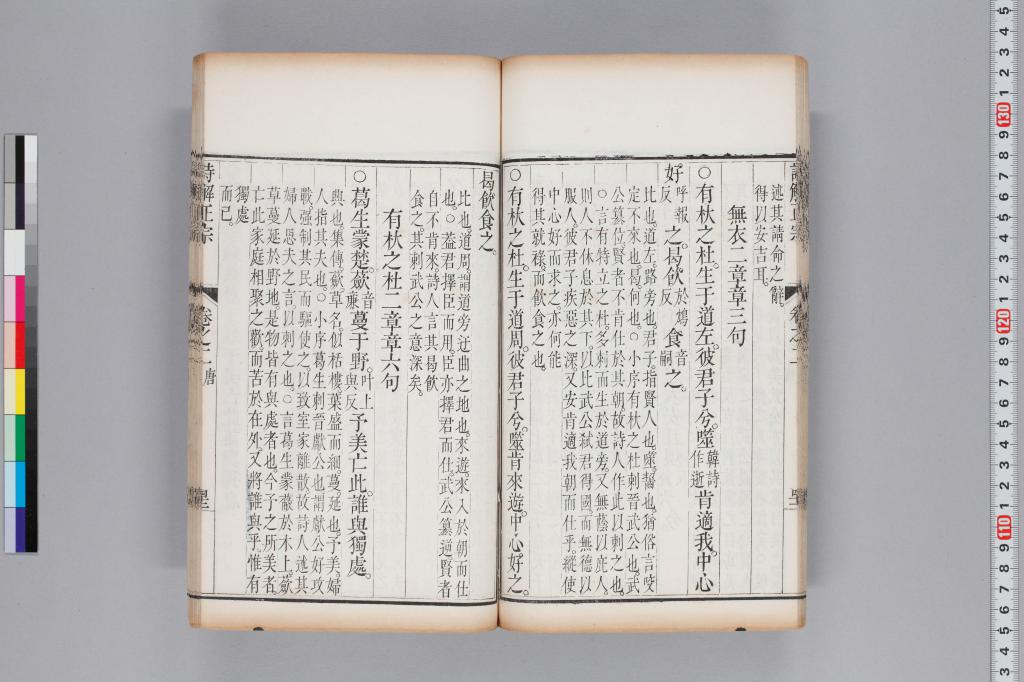 述其請命之辭。
得以安吉耳。
無衣二章章三句
○有杕之杜。生于道左。彼君子兮。噬韓詩作逝肯適我。中心
好呼報反之。曷飲於鴆反食音嗣之。
比也。道左。路旁也。君子。指賢人也。噬。齧也。猶俗言咬
定不來也。曷。何也。○小序有杕之杜刺晉武公也。武
公篡位。賢者不肯仕於其朝。故詩人作此以刺之也。
○言有特立之杜。多刺而生於道旁。又無蔭以庇人。
則人不休息於其下。以比武公弒君得國。而無德以
服人。彼君子疾惡之深。又安肯適我朝而仕乎。縱使
中心好而求之。亦何能
得其就祿。而飲食之也。
○有杕之杜。生于道周。彼君子兮。噬肯來遊。中心好之。
曷飲食之。
比也。道周。謂道旁迂曲之地也。來遊。來入於朝。而仕
也。○葢君擇臣而用。臣亦擇君而仕。武公篡逆。賢者
自不肯來。詩人言其曷飲
食之。其刺武公之意深矣。
有杕之杜二章章六句
○葛生蒙楚。蘞音廉蔓于野。叶上與反予美亡此。誰與獨處。
興也。集傳蘞。草名。似栝樓葉盛而細。蔓。延也。予美。婦
人指其夫也。○小序葛生刺晉獻公也。謂獻公好攻
戰。强制其民而驅使之。以致室家離散。故詩人述其
婦人思夫之言以刺之也。○言葛生蒙蔽於木上。蘞
草蔓延於野地。是物皆有與處者也。今予之所美者。
亡此家庭相聚之歡。而苦於在外。又將誰與乎。惟有
獨處
而已。
詩解正宗
卷之二
唐